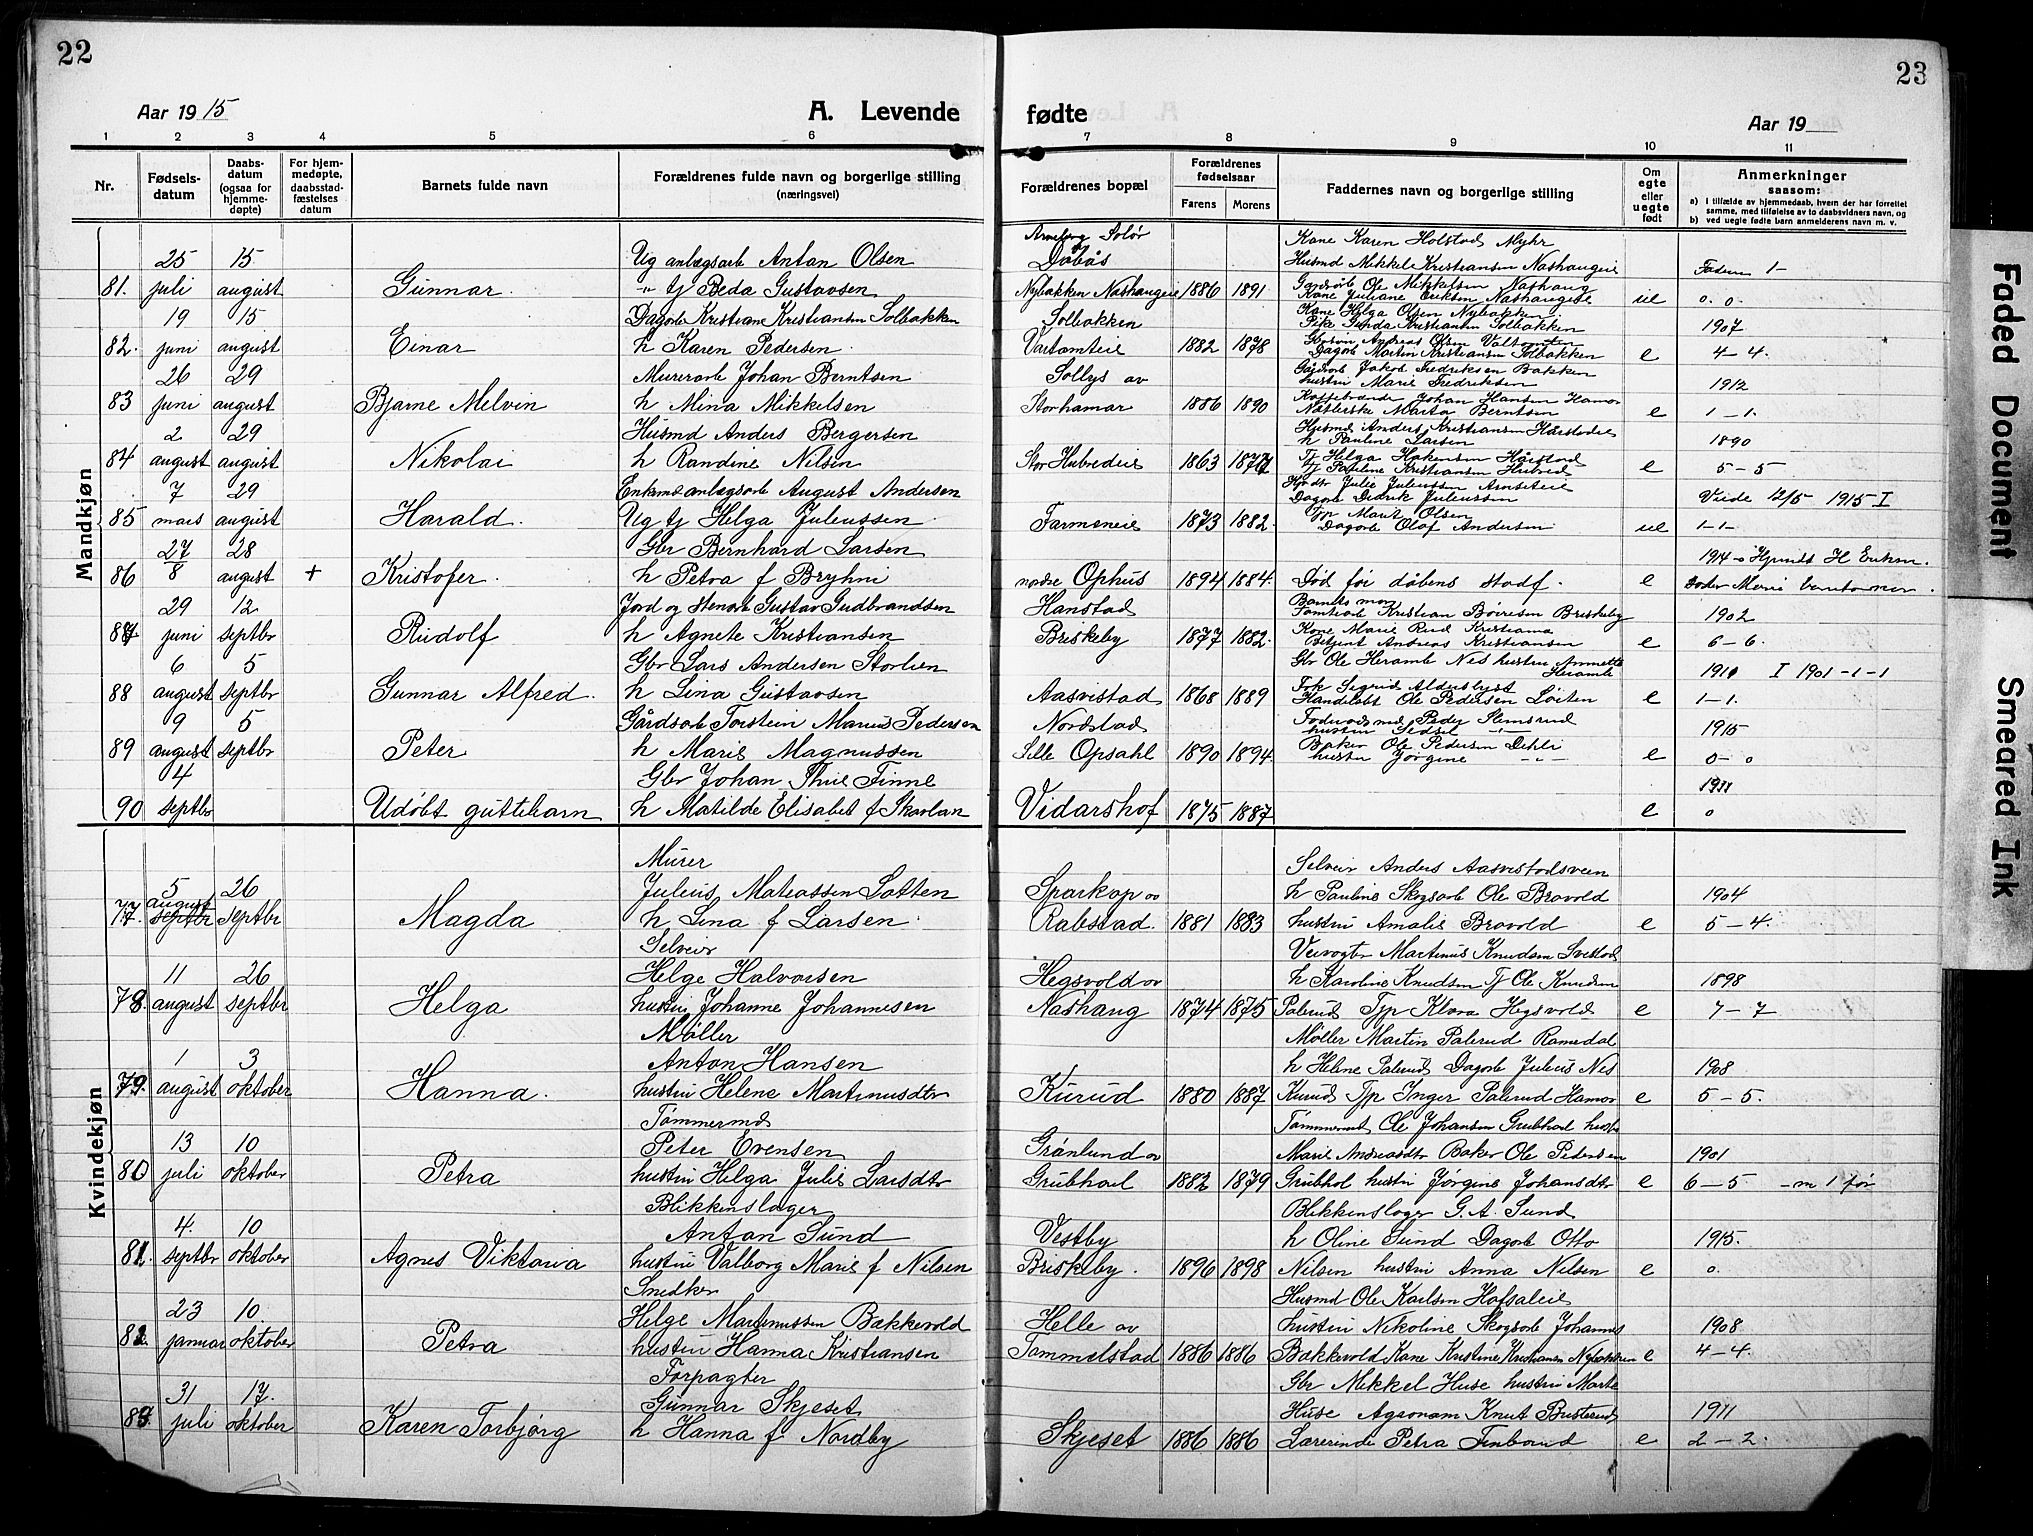 22
Aar 1915
A. Levende
1 2 3 4 5 6
Nr.
Fødsels-
datum
Daabs-
datum
(ogsaa for
hjemme-
døpte)
For hjem-
medøpte,
daabsstad-
fæstelses
datum
Barnets fulde navn
Forældrenes fulde navn og borgerlige stilling
(næringsvei)
Mandkjøn
25 15 Ug anlægsarb Anton Olsen
81. juli august Gunnar. " tj Beda Gustavsen
19 15 Dagarb Kristiane Kristiansen Solbakken
82. juni august Einar h Karen Pedersen
26 29 Murerarb Johan Berntsen
83 juni august Bjarne Melvin h Mina Mikkelsen
2 29 Husmd Anders Bergersen
84 august august Nikolai h Randine Nilsen
7 29 Enkemd anlægsarb August Andersen
85 mars august Harald. Ug tj Helga Juliussen
27 28 Gbr Bernhard Larsen
86 8 august + Kristofer. h Petra f Bryhni
29 12 Jord og Stenarb Gustav Gudbrandsen
87 juni septbr Rudolf h Agnete Kristiansen
6 5 Gbr Lars Andersen Storlien
88 august septbr Gunnar Alfred. h Lina Gustavsen
9 5 Gårdsarb Torstein Marius Pedersen
89 august septbr Peter h Marie Magnussen
4 Gbr Johan Thue Finne
90 septbr Udøbt guttebarn h Matilde Elisabet f Skavlan
Kvindekjøn
Murer
5 26 Julius Matiassen Lotten
77. august septbr septbr Magda h Lina f Larsen
Selveier
11 26 Helge Halvorsen
78. august septbr Helga hustru Johanne Johannesen
Møller
1 3 Anton Hansen
79. august oktober Hanna. hustru Helene Martinusdtr
Tømmermd
13 10 Peter Evensen
80 juli oktober Petra hustru Helga Julie Larsdtr
Blikkenslager
4. 10 Anton Sund
81. septbr oktober Agnes Viktoria hustru Valborg Marie f Nilsen
Snedker
23 10 Helge Martinussen Bækkevold
82. januar oktober Petra hustru Hanna Kristiansen
Forpagter
31 17. Gunnar Skjeset
83 juli oktober Karen Torbjørg h Hanna f Nordby
23
fødte
Aar 19
7 8 9 10 11
Forældrenes bopæl
Forældrenes
fødselsaar
Farens Morens
Faddernes navn og borgerlige stilling
Om
egte
eller
uegte
født
Anmerkninger
saasom:
a) i tilfælde av hjemmedaab, hvem der har forrettet
samme, med tilføielse av to daabsvidners navn, og
b) ved uegte fødte barn anmelderens navn m. v.
Arneberg Solør Kone Karen Holstad Myhr
Husmd Mikkel Kristiansen Nashaugeie Faderen 1-
Nybakken Nashaugeie 1886 1891 Gardsarb Ole Mikkelsen Nashaug uel 0. 0.
Kone Juliane Eriksen Nashaugeie
Solbakken Kone Helga Olsen Nybakken 1907
Pike Gunda Kristiansen Solbakken
1882 1878 Dagarb Martin Kristiansen Solbakken e 4-4.
Sollys av Gårdsarb Jakob Fredriksen Bakken
hustru Marie Fredriksen 1912
Storhamar 1886 1890 Johan Hansen Hamar e 1-1.
Marta Berntsen
Husmd Anders Kristiansen
h Pauline Larsen 1890
1863 1877 Tj Helga Hakensen e 5-5
Julie Juliussen
Dagarb Didrik Juliussen Viede 12/5 1915 I
Farmeneie 1873 1882 Typ Marit Olsen uel 1-1-
Dagarb Olaf Andersen
nordre Ophus 1894 1884. Død før dåbens stadf. e
Hanstad Barnets mor
Tømtearb Kristian Børresen Briskeby 1902
Briskeby 1877 1882. Kone Marie Rud Kristiania e 6-6.
Betjent Andreas Kristiansen
Gbr Ole Heramb Nes hustru Ammette Heramb 1910 I 1901-1-1
Aasvistad 1868 1889 Frk Sigrid e 1-1.
Ole Pedersen Løiten
Nordstad Peder Slemsrud 1915
Lille Opsahl 1890 1894. Baker Ole Pedersen Dehli e 0- 0
hustru Jørgine -"-
1911
Vidarshof 1875 1887 e 0
Selveier Anders Aasvestadsveen
Sparkop av h Pauline Skogsarb Ole Bravold 1904
Rabstad. 1881 1883 hustru Amalie Bravold e 5-4.
Veivogter Martinus Knudsen Svestad
Hegsvold av h Karoline Knudsen Tj Ole Knudsen 1898
Nashaug 1874 1875 Palerud Typ Klara Hegsvold e 7-7
Møller Martin Palerud Ramedal
h Helene Palerud Dagarb Julius Nes 1908
Kurud 1880 1887 Kurud Typ Inger Palerud Hamar e 5-5.
Tømmermt Ole Johansen Grubhoel hustr
Grønlund av Marie Andreasdtr Baker Ole Pedersen 1901
Grubhoel 1882 1879 Grubhol hustru Jørgine Johansdtr e 6-5 -m 1 før
Blikkenslager G. A. Sund
Vestby h Oline Sund Dagarb Otto 1915.
Briskeby. 1896 1898 Nilsen hustru Anna Nilsen e 0.
Husmd Ole Karlsen Hofsaleie
Helle av hustru Nikoline Skogsarb Johannes 1908
Tommelstad 1886 1886 Bækkevold Kone Kristine Kristiansen Nybakken e 4-4.
Gbr Mikkel Huse hustru Marte
Huse Agronom Knut Busterud 1911
Skjeset 1886 1886 Lærerinde Petra Finborud e 2-2.
Faded Document
Smeared Ink